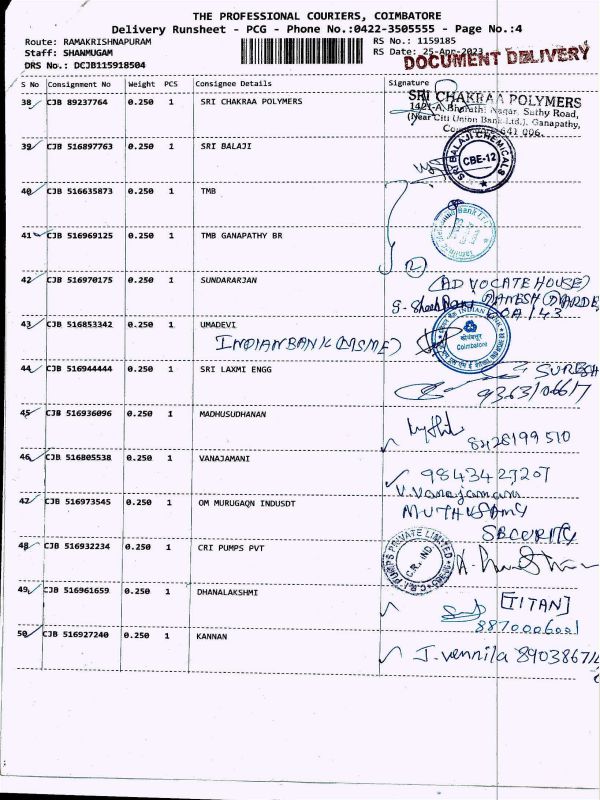 THE PROFESSIONAL COURIERS, COIMBATORE
Delivery Runsheet - PCG - Phone No.:0422-3505555 - Page No.:4
Route: RAMAKRISHNAPURAM RS No.: 1159185
Staff: SHANMUGAM RS Date: 25-Apr-2023
DRS No.: DCJB115918504 DOCUMENT DELIVERY
S No Consignment No Weight PCS Consignee Details Signature
38 CJB 89237764 0.250 1 SRI CHAKRAA POLYMERS
SRI CHAKRAA POLYMERS
1421-A, Bharathi Nagar, Sathy Road,
(Near Citi Union Bank Ltd.), Ganapathy,
641 006.
39 CJB 516897763 0.250 1 SRI BALAJI
SRI BALAJI CHEMICALS
CBE-12
40 CJB 516635873 0.250 1 TMB
41 CJB 516969125 0.250 1 TMB GANAPATHY BR
2
42 CJB 516970175 0.250 1 SUNDARARJAN
(ADVOCATE HOUSE)
43 CJB 516853342 0.250 1 UMADEVI
INDIAN BANK (MSME)
INDIAN BANK
Coimbatore
44 CJB 516944444 0.250 1 SRI LAXMI ENGG
SURESH
45 CJB 516936096 0.250 1 MADHUSUDHANAN
8428199510
46 CJB 516805538 0.250 1 VANAJAMANI
9843427207
V. Vanajamani
47 CJB 516973545 0.250 1 OM MURUGAQN INDUSDT
MUTHUSAMY
SECURITY
48 CJB 516932234 0.250 1 CRI PUMPS PVT
C.R.I. PUMPS PRIVATE LIMITED
49 CJB 516961659 0.250 1 DHANALAKSHMI
[TITAN]
8870006001
50 CJB 516927240 0.250 1 KANNAN
J. vennila